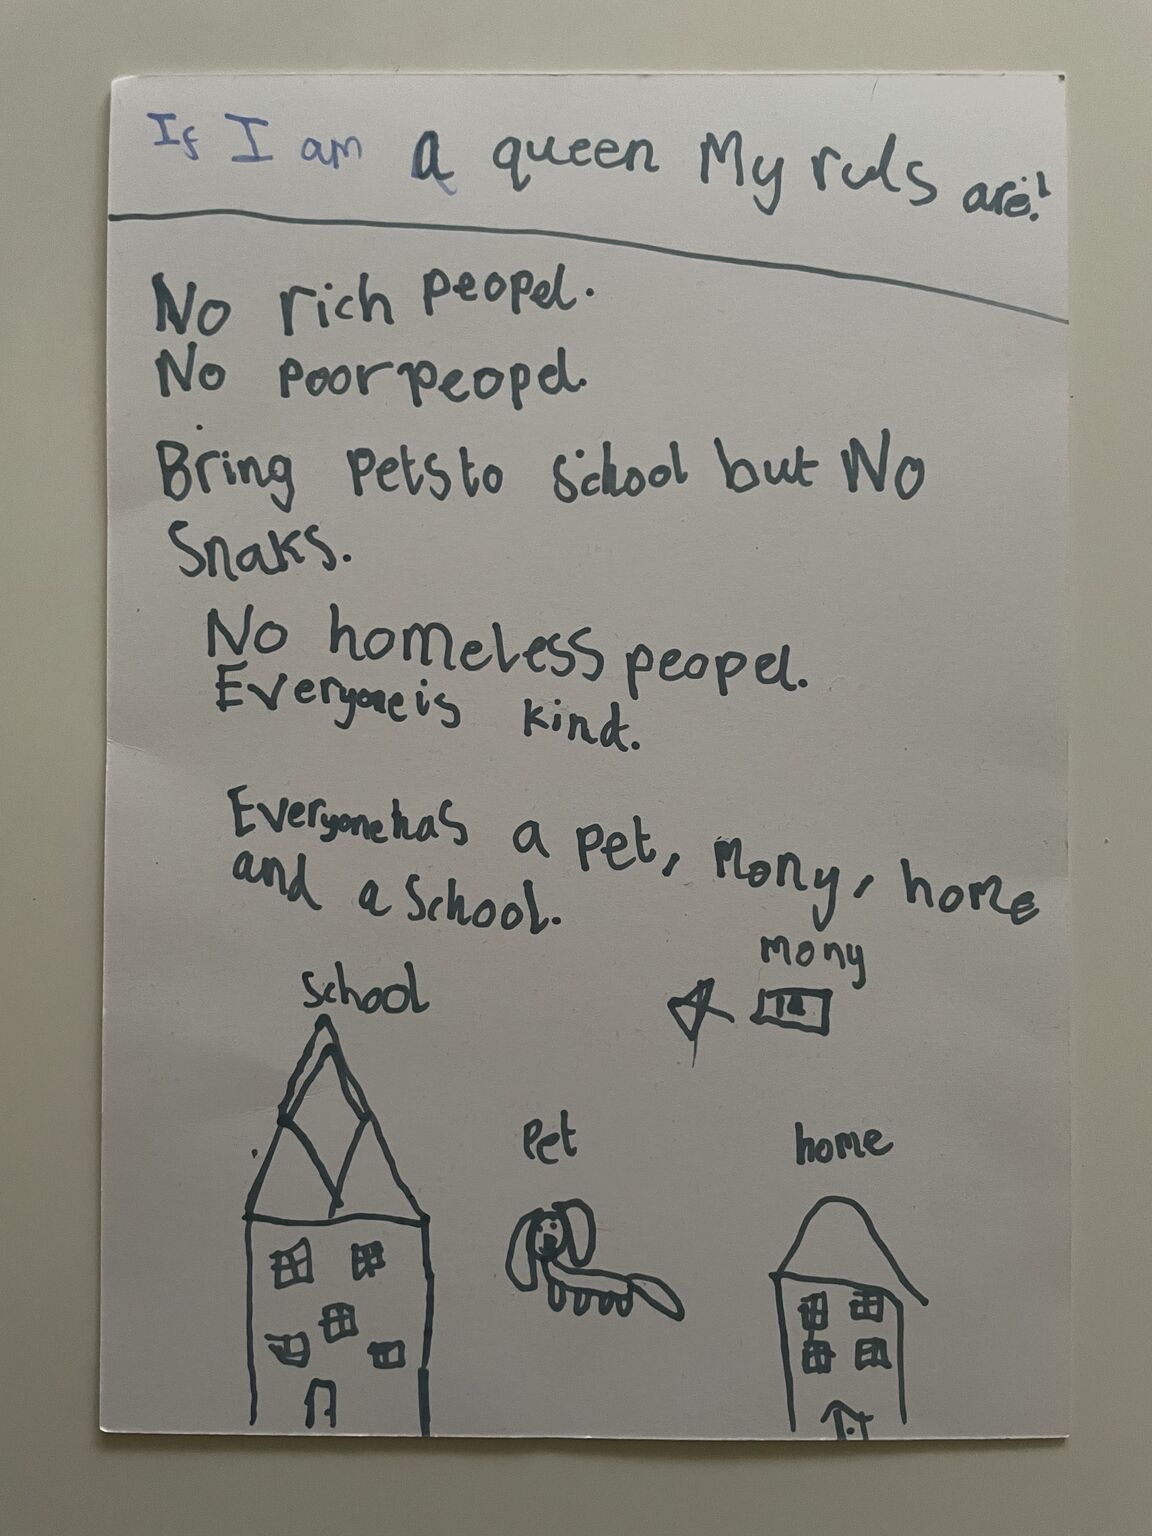 If I am a queen My ruls are!
No rich peopel.
No poor peopel.
Bring Pets to school but No
Snaks.
No homeless peopel.
Everyone is kind.
Everyone has a pet, mony, home
and a school.
mony
school
Pet
home